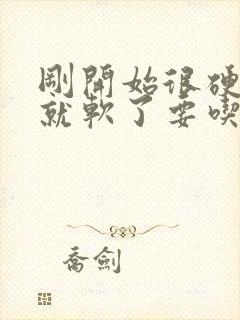 剛開始很硬
就軟了要喫
喬劍